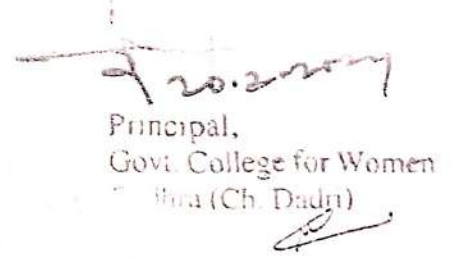 20.2.2024
Principal,
Govt. College for Women
(Ch. Dadri)